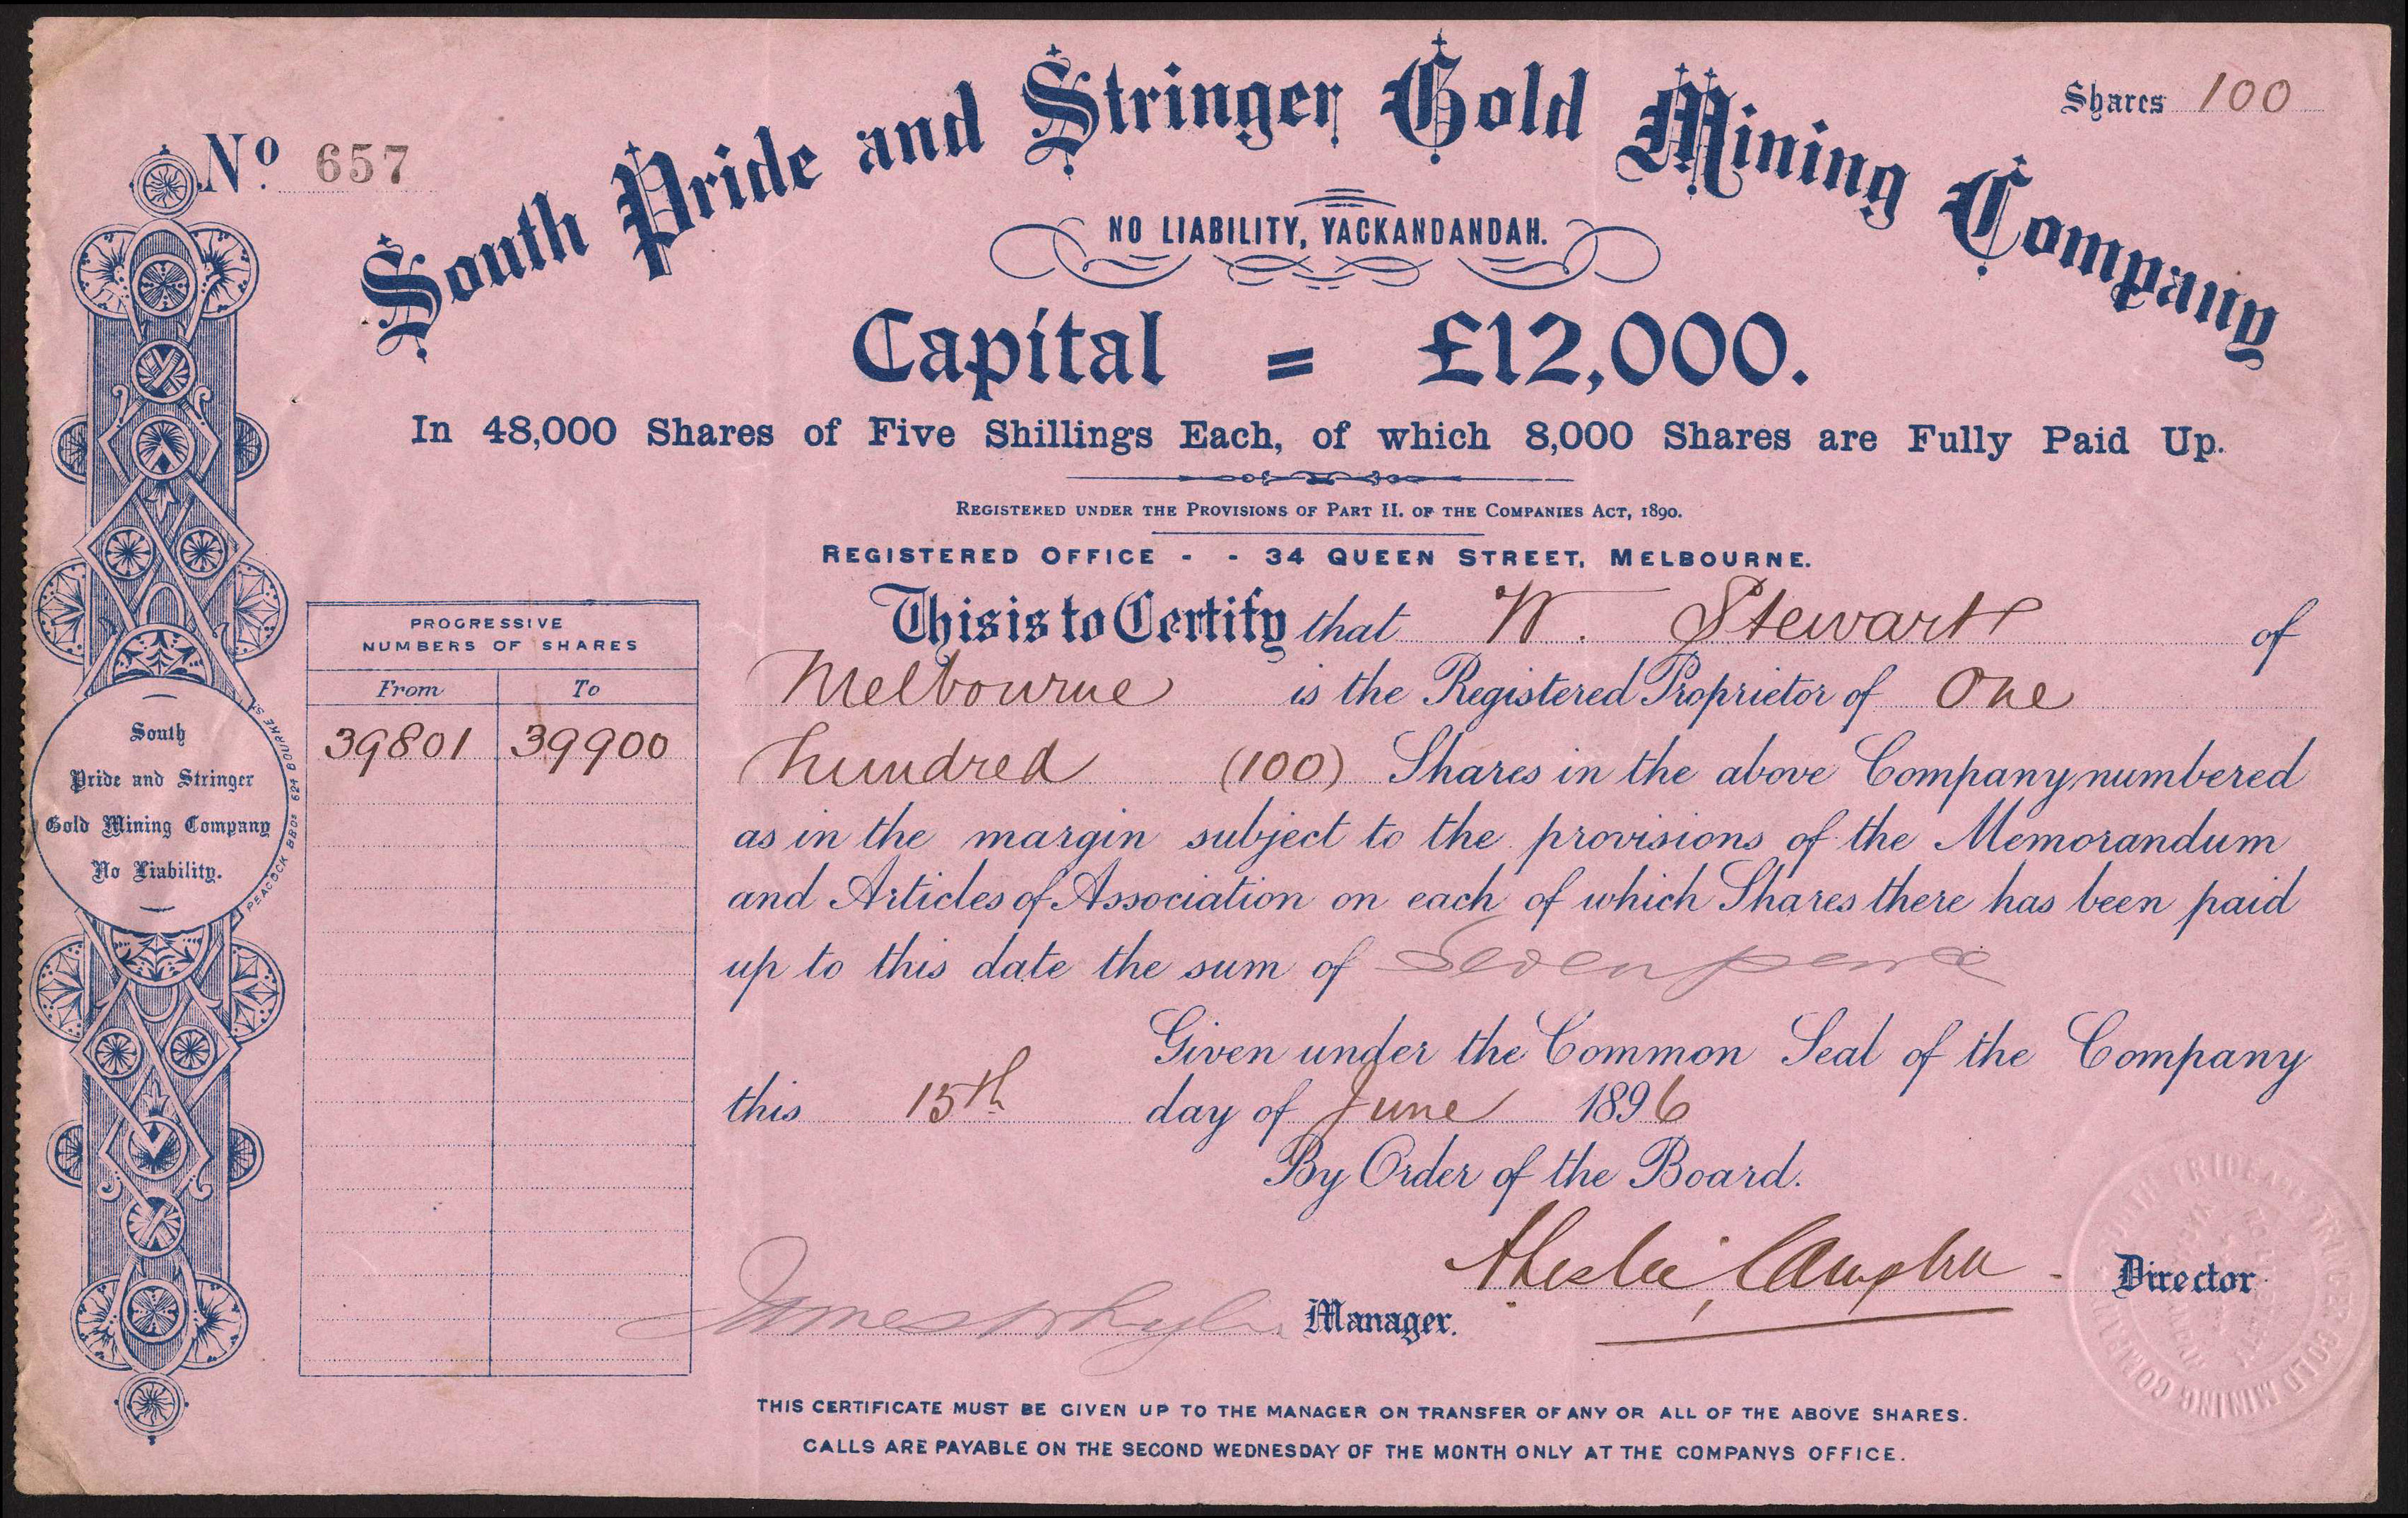 No. 657
Shares 100
South Pride and Stringer Gold Mining Company
NO LIABILITY, YACKANDANDAH.
Capital = £12,000.
In 48,000 Shares of Five Shillings Each, of which 8,000 Shares are Fully Paid Up.
REGISTERED UNDER THE PROVISIONS OF PART II. OF THE COMPANIES ACT, 1890.
REGISTERED OFFICE - - 34 QUEEN STREET, MELBOURNE.
This is to Certify that W. Stewart of
Melbourne is the Registered Proprietor of One
hundred (100) Shares in the above Company, numbered
as in the margin subject to the provisions of the Memorandum
and Articles of Association on each of which Shares there has been paid
up to this date the sum of Sevenpence
Given under the Common Seal of the Company
this 15th day of June 1896
By Order of the Board.
Director
Manager.
PROGRESSIVE
NUMBERS OF SHARES
From To
39801 39900
South
Pride and Stringer
Gold Mining Company
No Liability.
PEACOCK BROS 624 BOURKE ST
THIS CERTIFICATE MUST BE GIVEN UP TO THE MANAGER ON TRANSFER OF ANY OR ALL OF THE ABOVE SHARES.
CALLS ARE PAYABLE ON THE SECOND WEDNESDAY OF THE MONTH ONLY AT THE COMPANYS OFFICE.
SOUTH PRIDE AND STRINGER GOLD MINING COMPANY